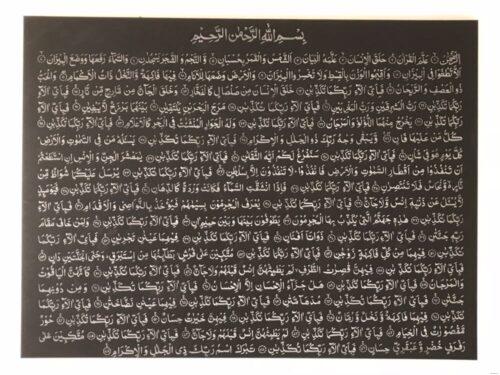 بِسْمِ اللهِ الرَّحْمٰنِ الرَّحِيْمِ
الرحمن علم القران خلق الانسان علمه البيان الشمس والقمر بحسبان والنجم والشجر يسجدن والسماء رفعها ووضع الميزان
الا تطغوا في الميزان واقيموا الوزن بالقسط ولا تخسروا الميزان والارض وضعها للانام فيها فاكهة والنخل ذات الاكمام والحب
ذو العصف والريحان فباي الاء ربكما تكذبن خلق الانسان من صلصال كالفخار وخلق الجان من مارج من نار فباي الاء
ربكما تكذبن رب المشرقين ورب المغربين فباي الاء ربكما تكذبن مرج البحرين يلتقين بينهما برزخ لا يبغين فباي الاء
ربكما تكذبن يخرج منهما اللؤلؤ والمرجان فباي الاء ربكما تكذبن وله الجوار المنشئت في البحر كالاعلام فباي الاء ربكما تكذبن
كل من عليها فان ويبقى وجه ربك ذو الجلل والاكرام فباي الاء ربكما تكذبن يسئله من في السموت والارض
كل يوم هو في شان فباي الاء ربكما تكذبن سنفرغ لكم ايه الثقلن فباي الاء ربكما تكذبن يمعشر الجن والانس ان استطعتم
ان تنفذوا من اقطار السموت والارض فانفذوا لا تنفذون الا بسلطن فباي الاء ربكما تكذبن يرسل عليكما شواظ من
نار ونحاس فلا تنتصرن فباي الاء ربكما تكذبن فاذا انشقت السماء فكانت وردة كالدهان فباي الاء ربكما تكذبن فيومئذ
لا يسئل عن ذنبه انس ولا جان فباي الاء ربكما تكذبن يعرف المجرمون بسيمهم فيؤخذ بالنواصي والاقدام فباي الاء
ربكما تكذبن هذه جهنم التي يكذب بها المجرمون يطوفون بينها وبين حميم ان فباي الاء ربكما تكذبن ولمن خاف مقام
ربه جنتن فباي الاء ربكما تكذبن ذواتا افنان فباي الاء ربكما تكذبن فيهما عينن تجرين فباي الاء ربكما
تكذبن فيهما من كل فاكهة زوجن فباي الاء ربكما تكذبن متكئين على فرش بطائنها من استبرق وجنى الجنتين دان
فباي الاء ربكما تكذبن فيهن قصرت الطرف لم يطمثهن انس قبلهم ولا جان فباي الاء ربكما تكذبن كانهن الياقوت
والمرجان فباي الاء ربكما تكذبن هل جزاء الاحسان الا الاحسان فباي الاء ربكما تكذبن ومن دونهما
جنتن فباي الاء ربكما تكذبن مدهامتن فباي الاء ربكما تكذبن فيهما عينن نضاختن فباي الاء ربكما تكذبن
فيهما فاكهة ونخل ورمان فباي الاء ربكما تكذبن فيهن خيرت حسان فباي الاء ربكما تكذبن حور
مقصورت في الخيام فباي الاء ربكما تكذبن لم يطمثهن انس قبلهم ولا جان فباي الاء ربكما تكذبن متكئين على
رفرف خضر وعبقري حسان فباي الاء ربكما تكذبن تبرك اسم ربك ذي الجلل والاكرام